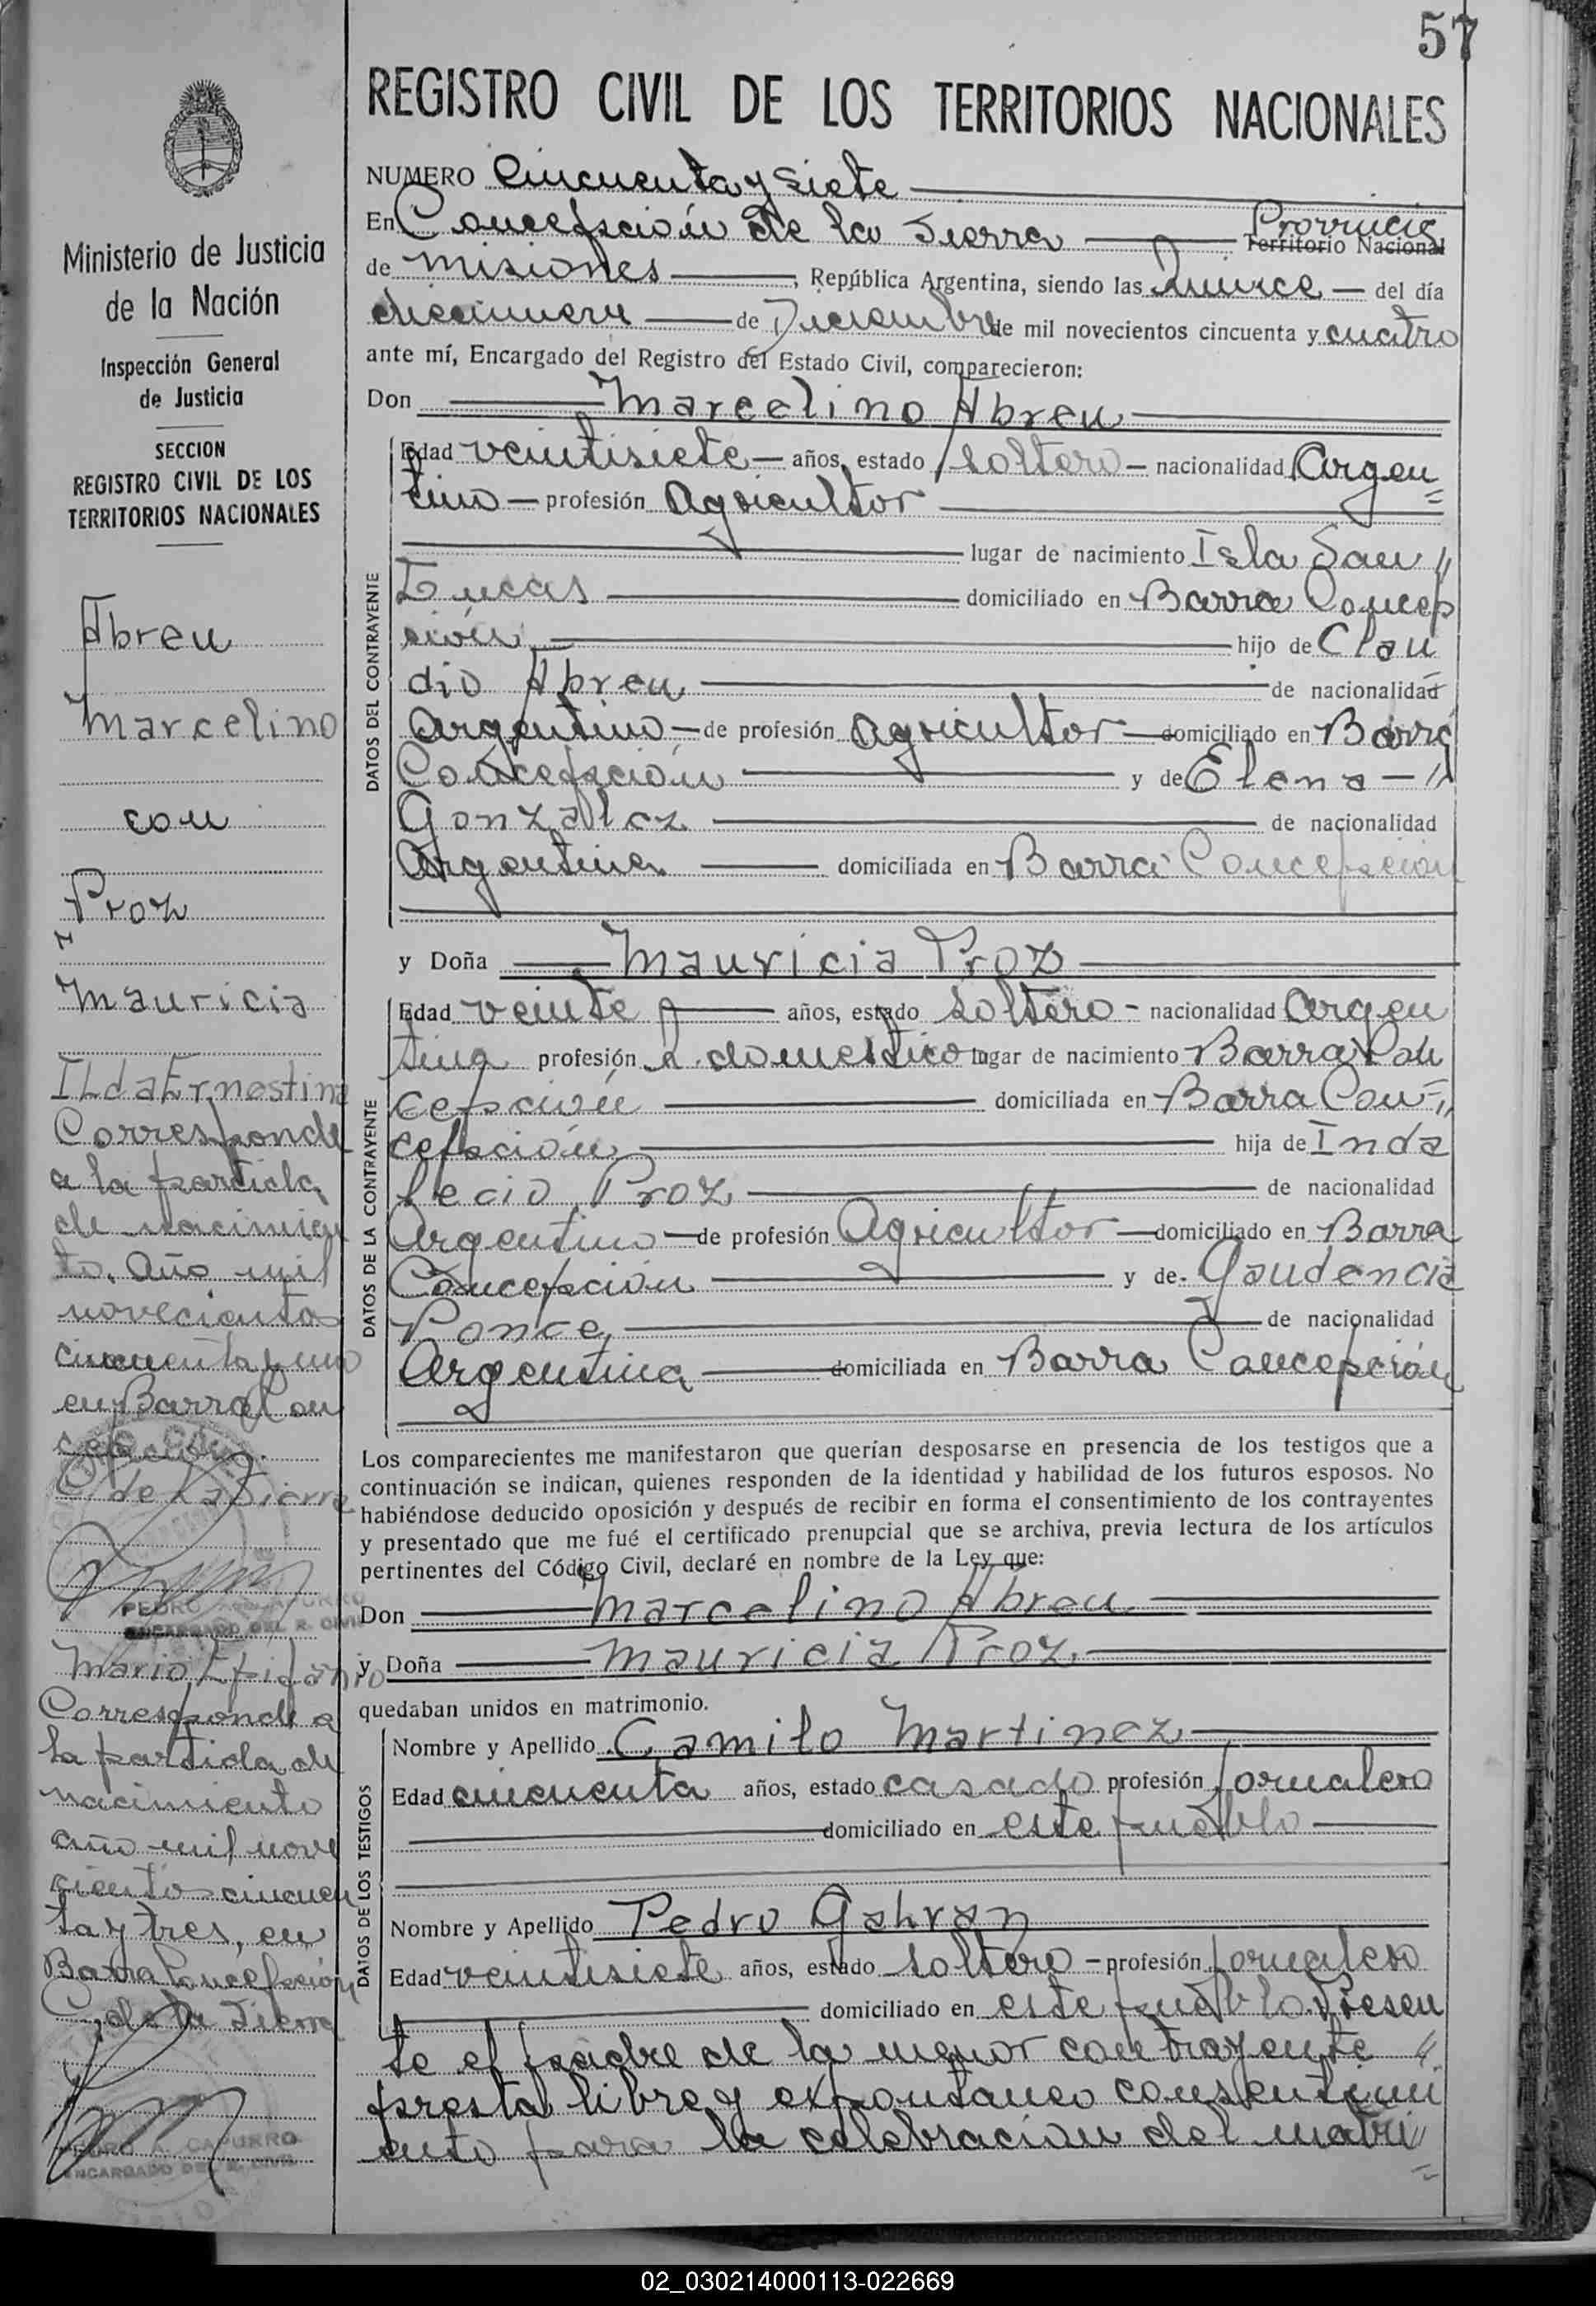 57
REGISTRO CIVIL DE LOS TERRITORIOS NACIONALES
NUMERO Cincuenta y siete
En Concepción de la Sierra Provincia Territorio Nacional
de Misiones, República Argentina, siendo las quince del día
diecinueve de Diciembre de mil novecientos cincuenta y cuatro
ante mí, Encargado del Registro del Estado Civil, comparecieron:
Don Marcelino Abreu
DATOS DEL CONTRAYENTE
Edad veintisiete años, estado soltero nacionalidad Argen
tino profesión Agricultor
lugar de nacimiento Isla San
Lucas domiciliado en Barra Concep
ción hijo de Clau
dio Abreu de nacionalidad
Argentino de profesión agricultor domiciliado en Barra
Concepción y de Elena
Gonzalez de nacionalidad
Argentina domiciliada en Barra Concepción
y Doña Mauricia Proz
DATOS DE LA CONTRAYENTE
Edad veinte años, estado soltero nacionalidad Argen
tina profesión q. domestico lugar de nacimiento Barra Con
cepción domiciliada en Barra Con
cepción hija de Inda
lecio Proz de nacionalidad
Argentino de profesión Agricultor domiciliado en Barra
Concepción y de Gaudencia
Ponce de nacionalidad
Argentina domiciliada en Barra Concepción
Los comparecientes me manifestaron que querían desposarse en presencia de los testigos que a
continuación se indican, quienes responden de la identidad y habilidad de los futuros esposos. No
habiéndose deducido oposición y después de recibir en forma el consentimiento de los contrayentes
y presentado que me fué el certificado prenupcial que se archiva, previa lectura de los artículos
pertinentes del Código Civil, declaré en nombre de la Ley que:
Don Marcelino Abreu
y Doña Mauricia Proz
quedaban unidos en matrimonio.
DATOS DE LOS TESTIGOS
Nombre y Apellido Camilo Martinez
Edad cincuenta años, estado casado profesión jornalero
domiciliado en este pueblo
Nombre y Apellido Pedro Gahran
Edad veintisiete años, estado soltero profesión jornalero
domiciliado en este pueblo. Presen
te el padre de la menor contrayente
presta libre y expontaneo consentimi
ento para la celebracion del matri
Ministerio de Justicia
de la Nación
Inspección General
de Justicia
SECCION
REGISTRO CIVIL DE LOS
TERRITORIOS NACIONALES
Abreu
Marcelino
con
Proz
Mauricia
Ilda Ernestina
Corresponde
a la partida
de nacimien
to. Año mil
novecientos
cincuenta y uno
en Barra Con
cepcion.
C. de la Sierra
PEDRO A. CAPURRO
ENCARGADO DEL R. CIVIL
Mario Epifanio
Corresponde a
la partida de
nacimiento
año mil nove
cientos cincuen
ta y tres, en
Barra Concepción
C. de la Sierra
PEDRO A. CAPURRO
ENCARGADO DEL R. CIVIL
02_030214000113-022669